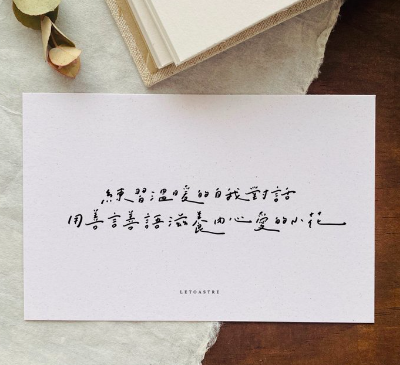 練習溫暖的自我對話
用善言善語滋養內心愛的小花
LETOASTRE